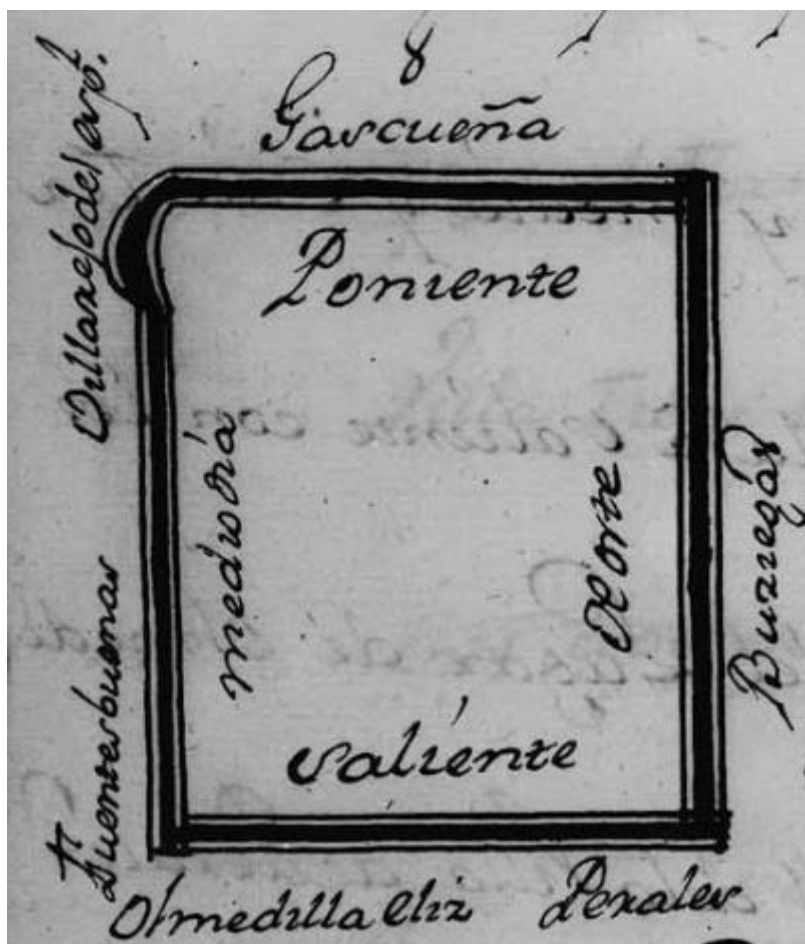 8
Gascueña
Villarejo del esp.
Poniente
mediodia
Norte
Buziegas
Fuentesbuenas
Saliente
Olmedilla eliz Perales